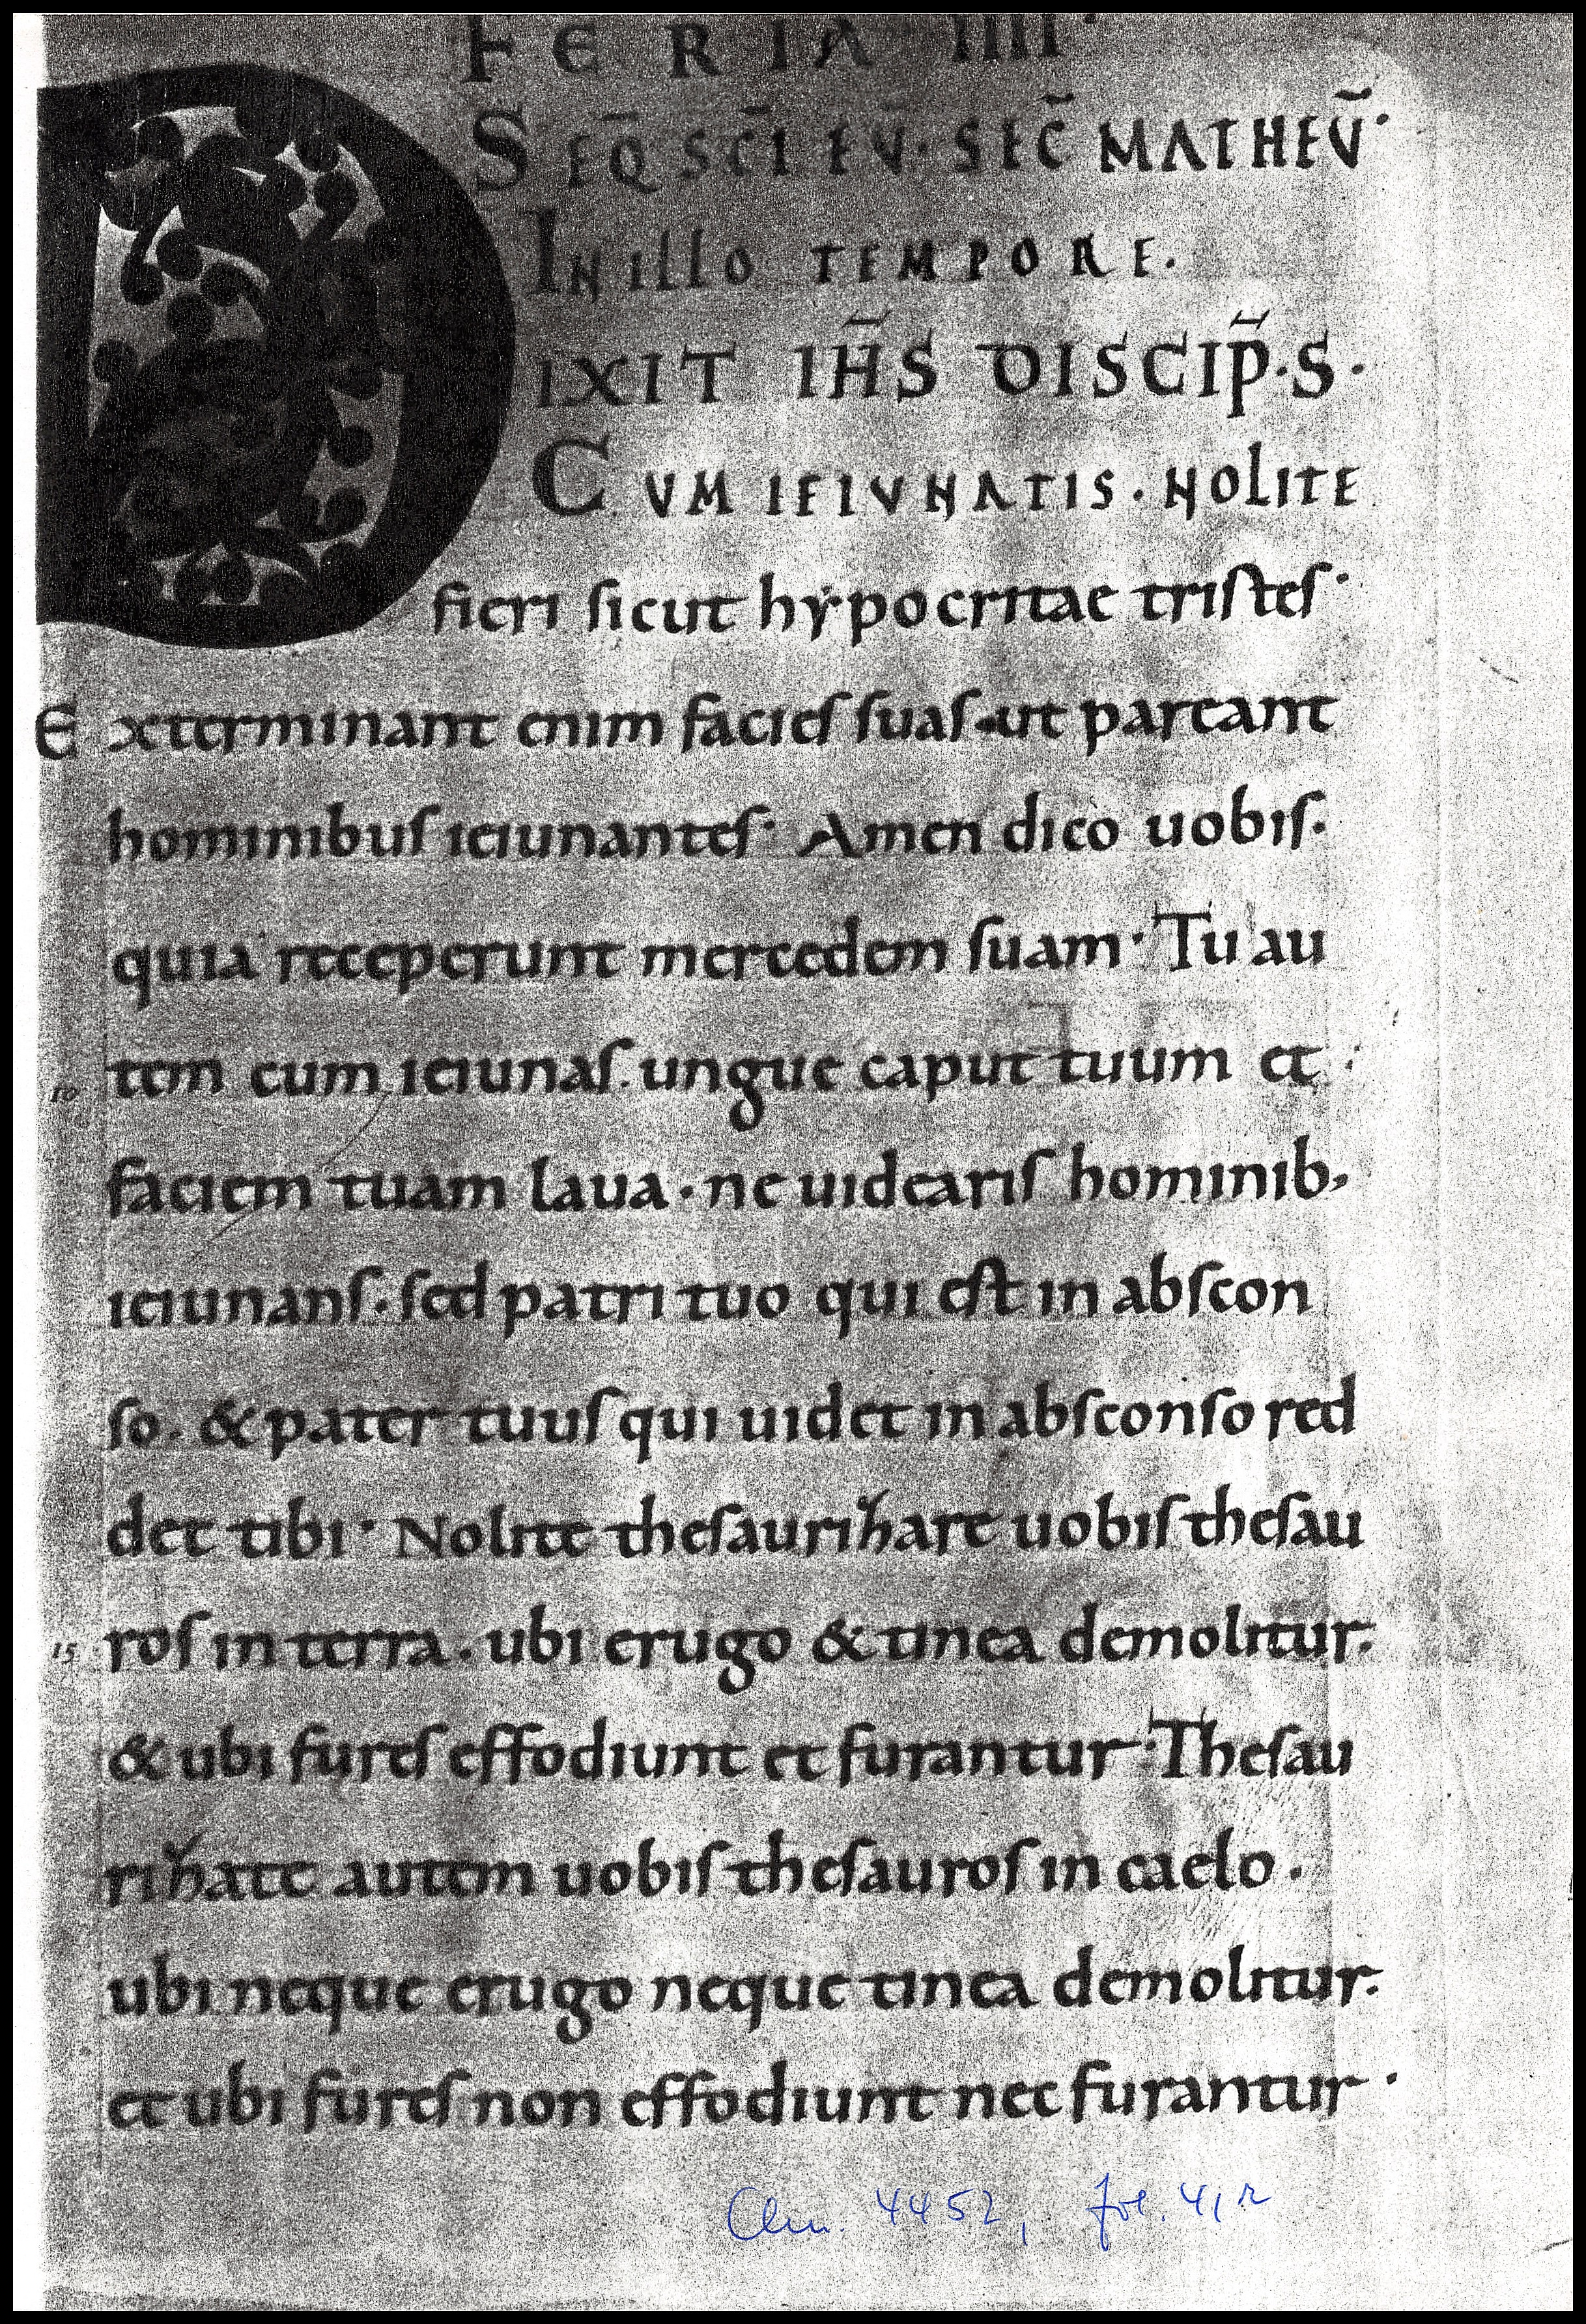 FERIA IIII·
SEQ̄ SC̄I EV̄· SEC̄ MATHEV̄·
IN ILLO TEMPORE·
DIXIT IH̄S DISCIP̄·S·
CVM IEIVNATIS· NOLITE
fieri sicut hẏpocritae tristes·
Exterminant enim facies suas· ut pareant
hominibus ieiunantes· Amen dico uobis·
quia receperunt mercedem suam· Tu au
10 tem cum ieiunas· ungue caput tuum et·
faciem tuam laua· ne uidearis hominib,
ieiunans· sed patri tuo qui est in abscon
so· & pater tuus qui uidet in absconso red
det tibi· Nolite thesaurihare uobis thesau
15 ros in terra· ubi erugo & tinea demolitur·
& ubi fures effodiunt et furantur· Thesau
rihate autem uobis thesauros in caelo·
ubi neque erugo neque tinea demolitur·
et ubi fures non effodiunt nec furantur·
Clm. 4452, fol. 41r